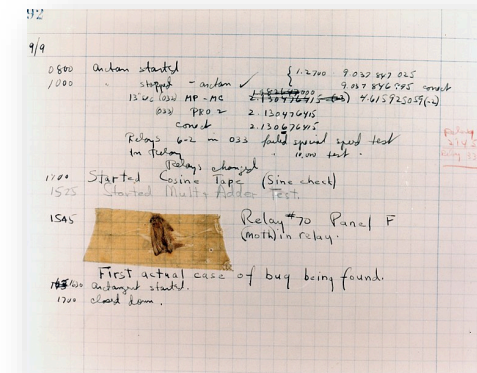 92
9/9
0800 antan started
1000 " stopped - antan ✓ { 1.2700 9.037 847 025
9.037 846 995 conect
13"uc (032) MP-MC 2.130476415 (-3) 4.615925059(-2)
(033) PRO 2 2.130476415
conect 2.130676415
Relays 6-2 in 033 failed special speed test
in relay " 10.000 test.
Relays changed
1700 Started Cosine Tape (Sine check)
1525 Started Mult+ Adder Test.
1545 Relay #70 Panel F
(moth) in relay.
First actual case of bug being found.
1630 antangent started.
1700 closed down.